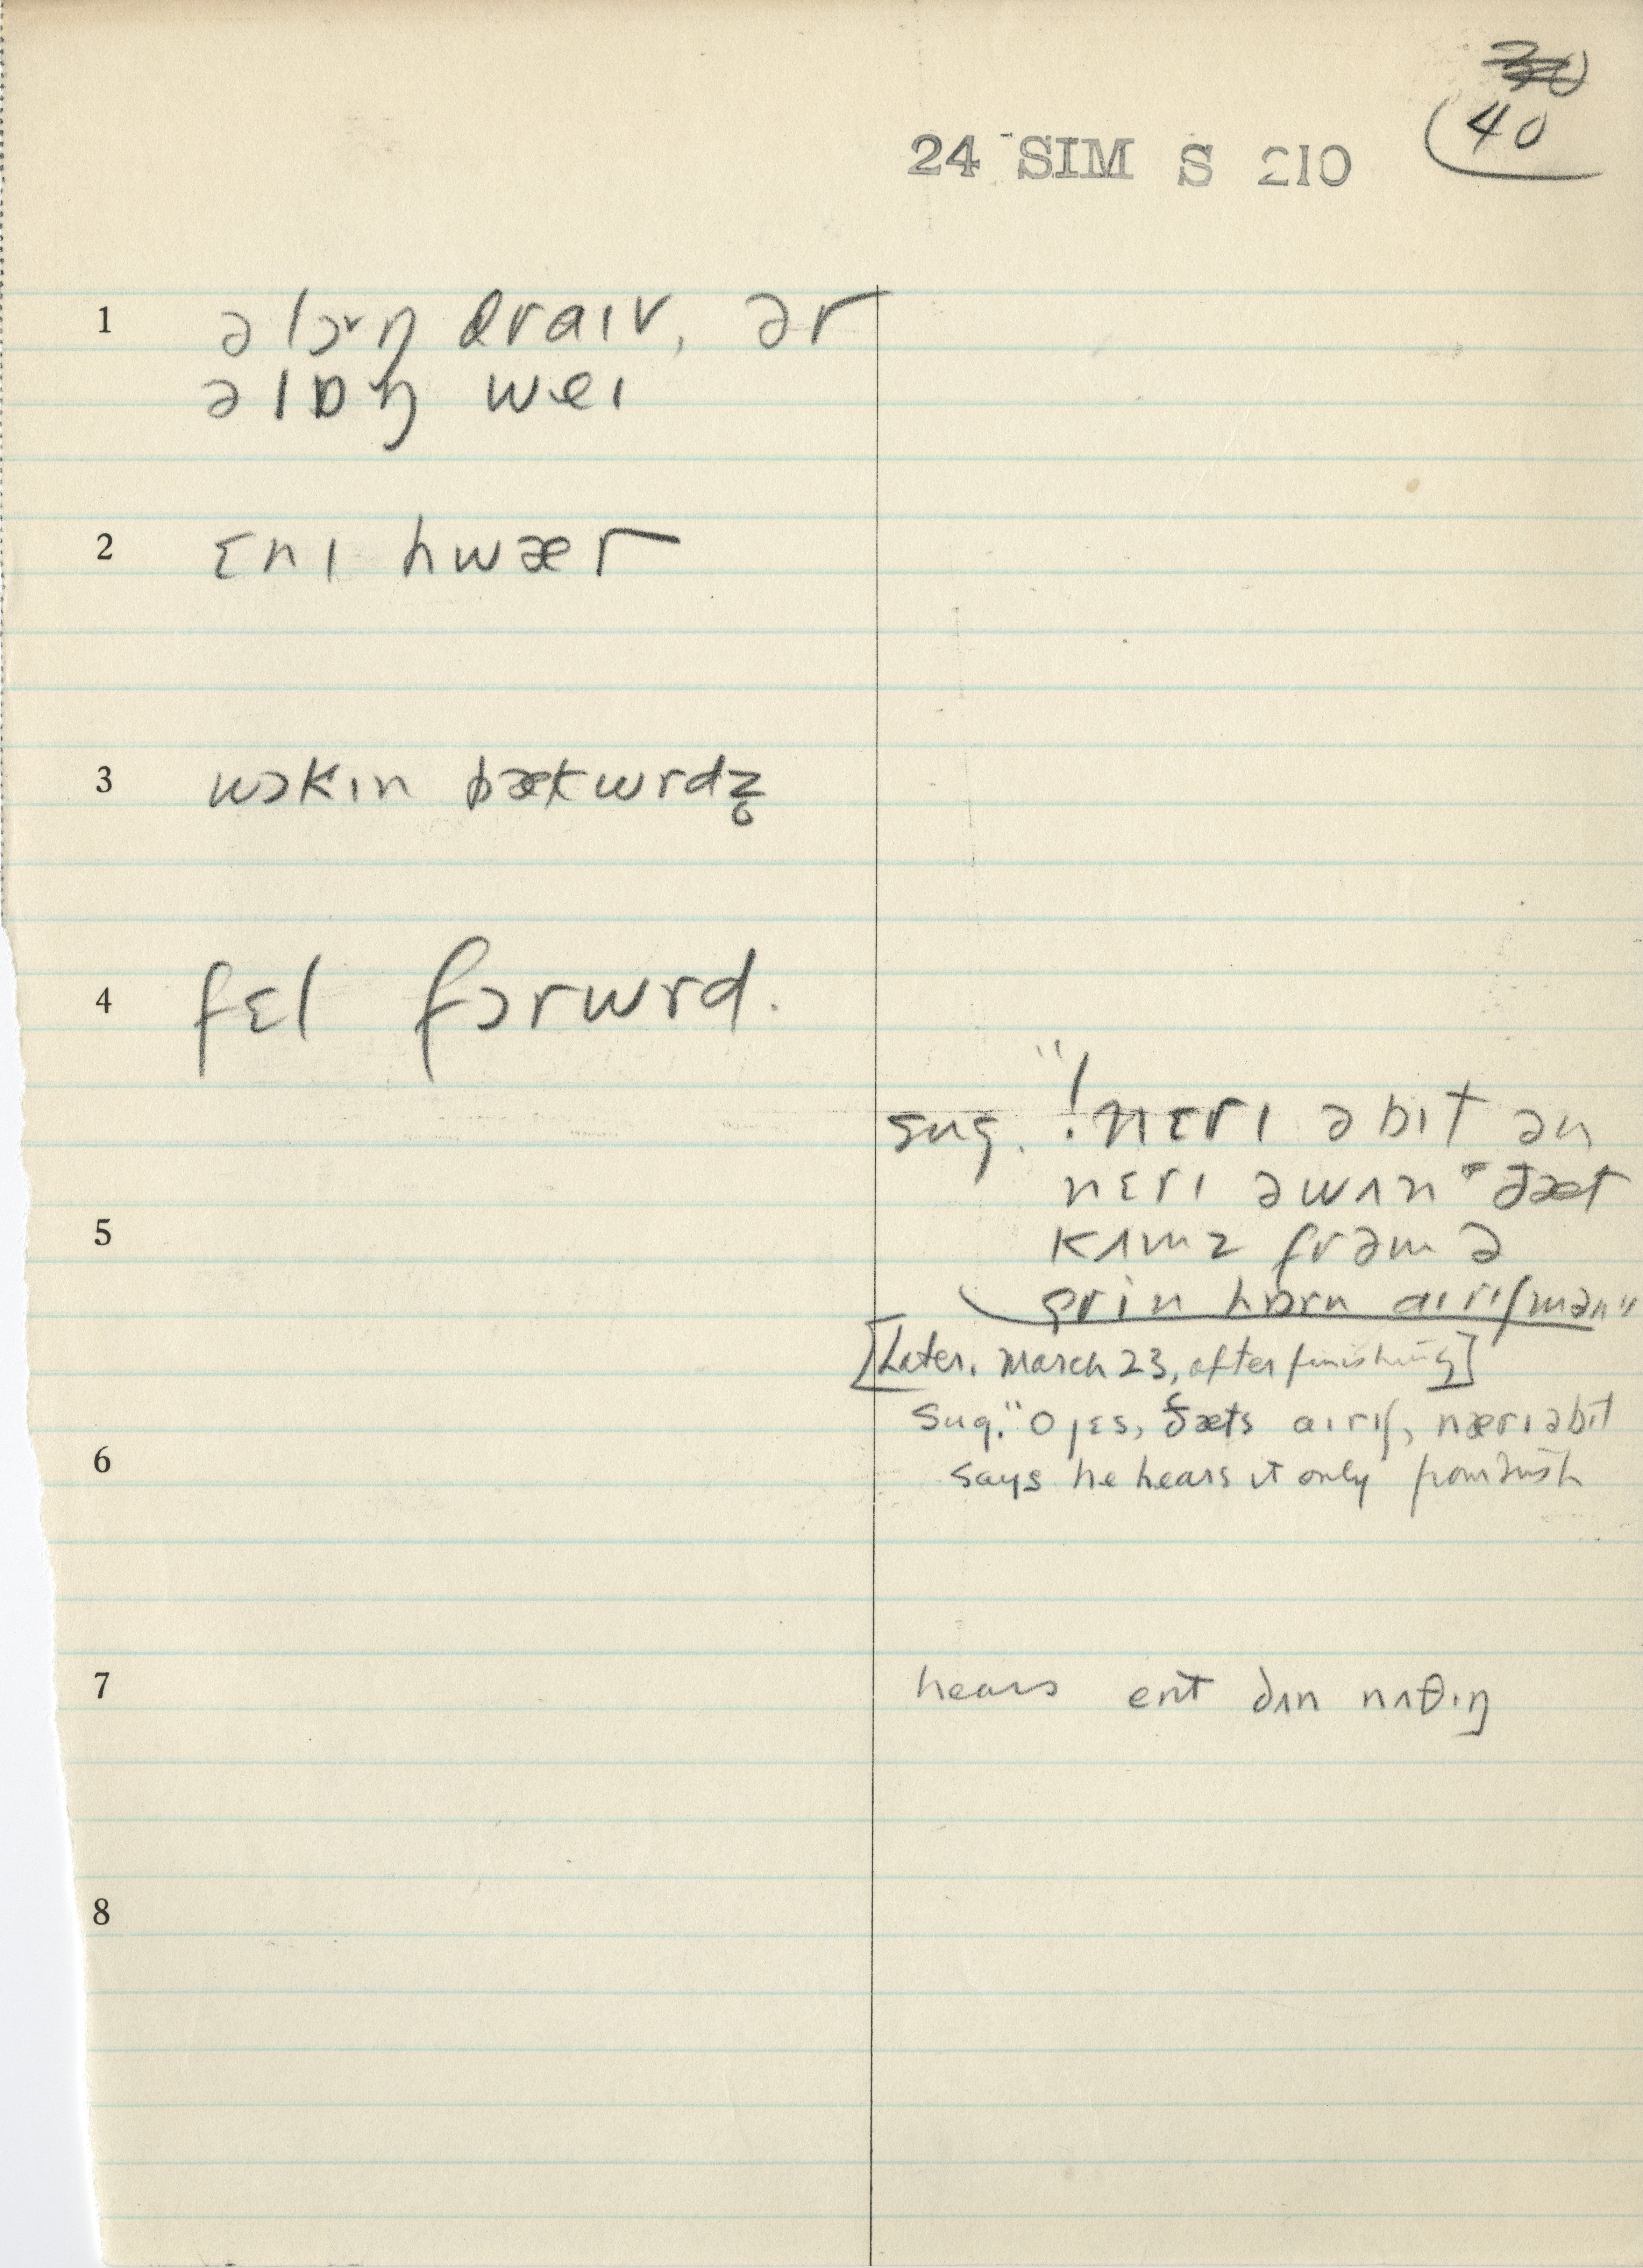 40
24 SIM S 210
1 ə lɔ˅ŋ draɪv, ər
ə lɒŋ weɪ
2 ɛnɪ hwær
3 wɔkɪn bækwrdz̥
4 fɛl fɔrwrd.
sug. "!nɛrɪ ə bɪt ən
nɛrɪ ə wʌn" ðæt
5 kʌmz frəm ə
grin hɒrn aɪrɪʃmən"
[Later. March 23, after finishing]
sug. "o jɛs, ðæts aɪrɪʃ, nærɪ ə bɪt
6 says he hears it only from Irish
7 hears eɪnt dʌn nʌθɪŋ
8